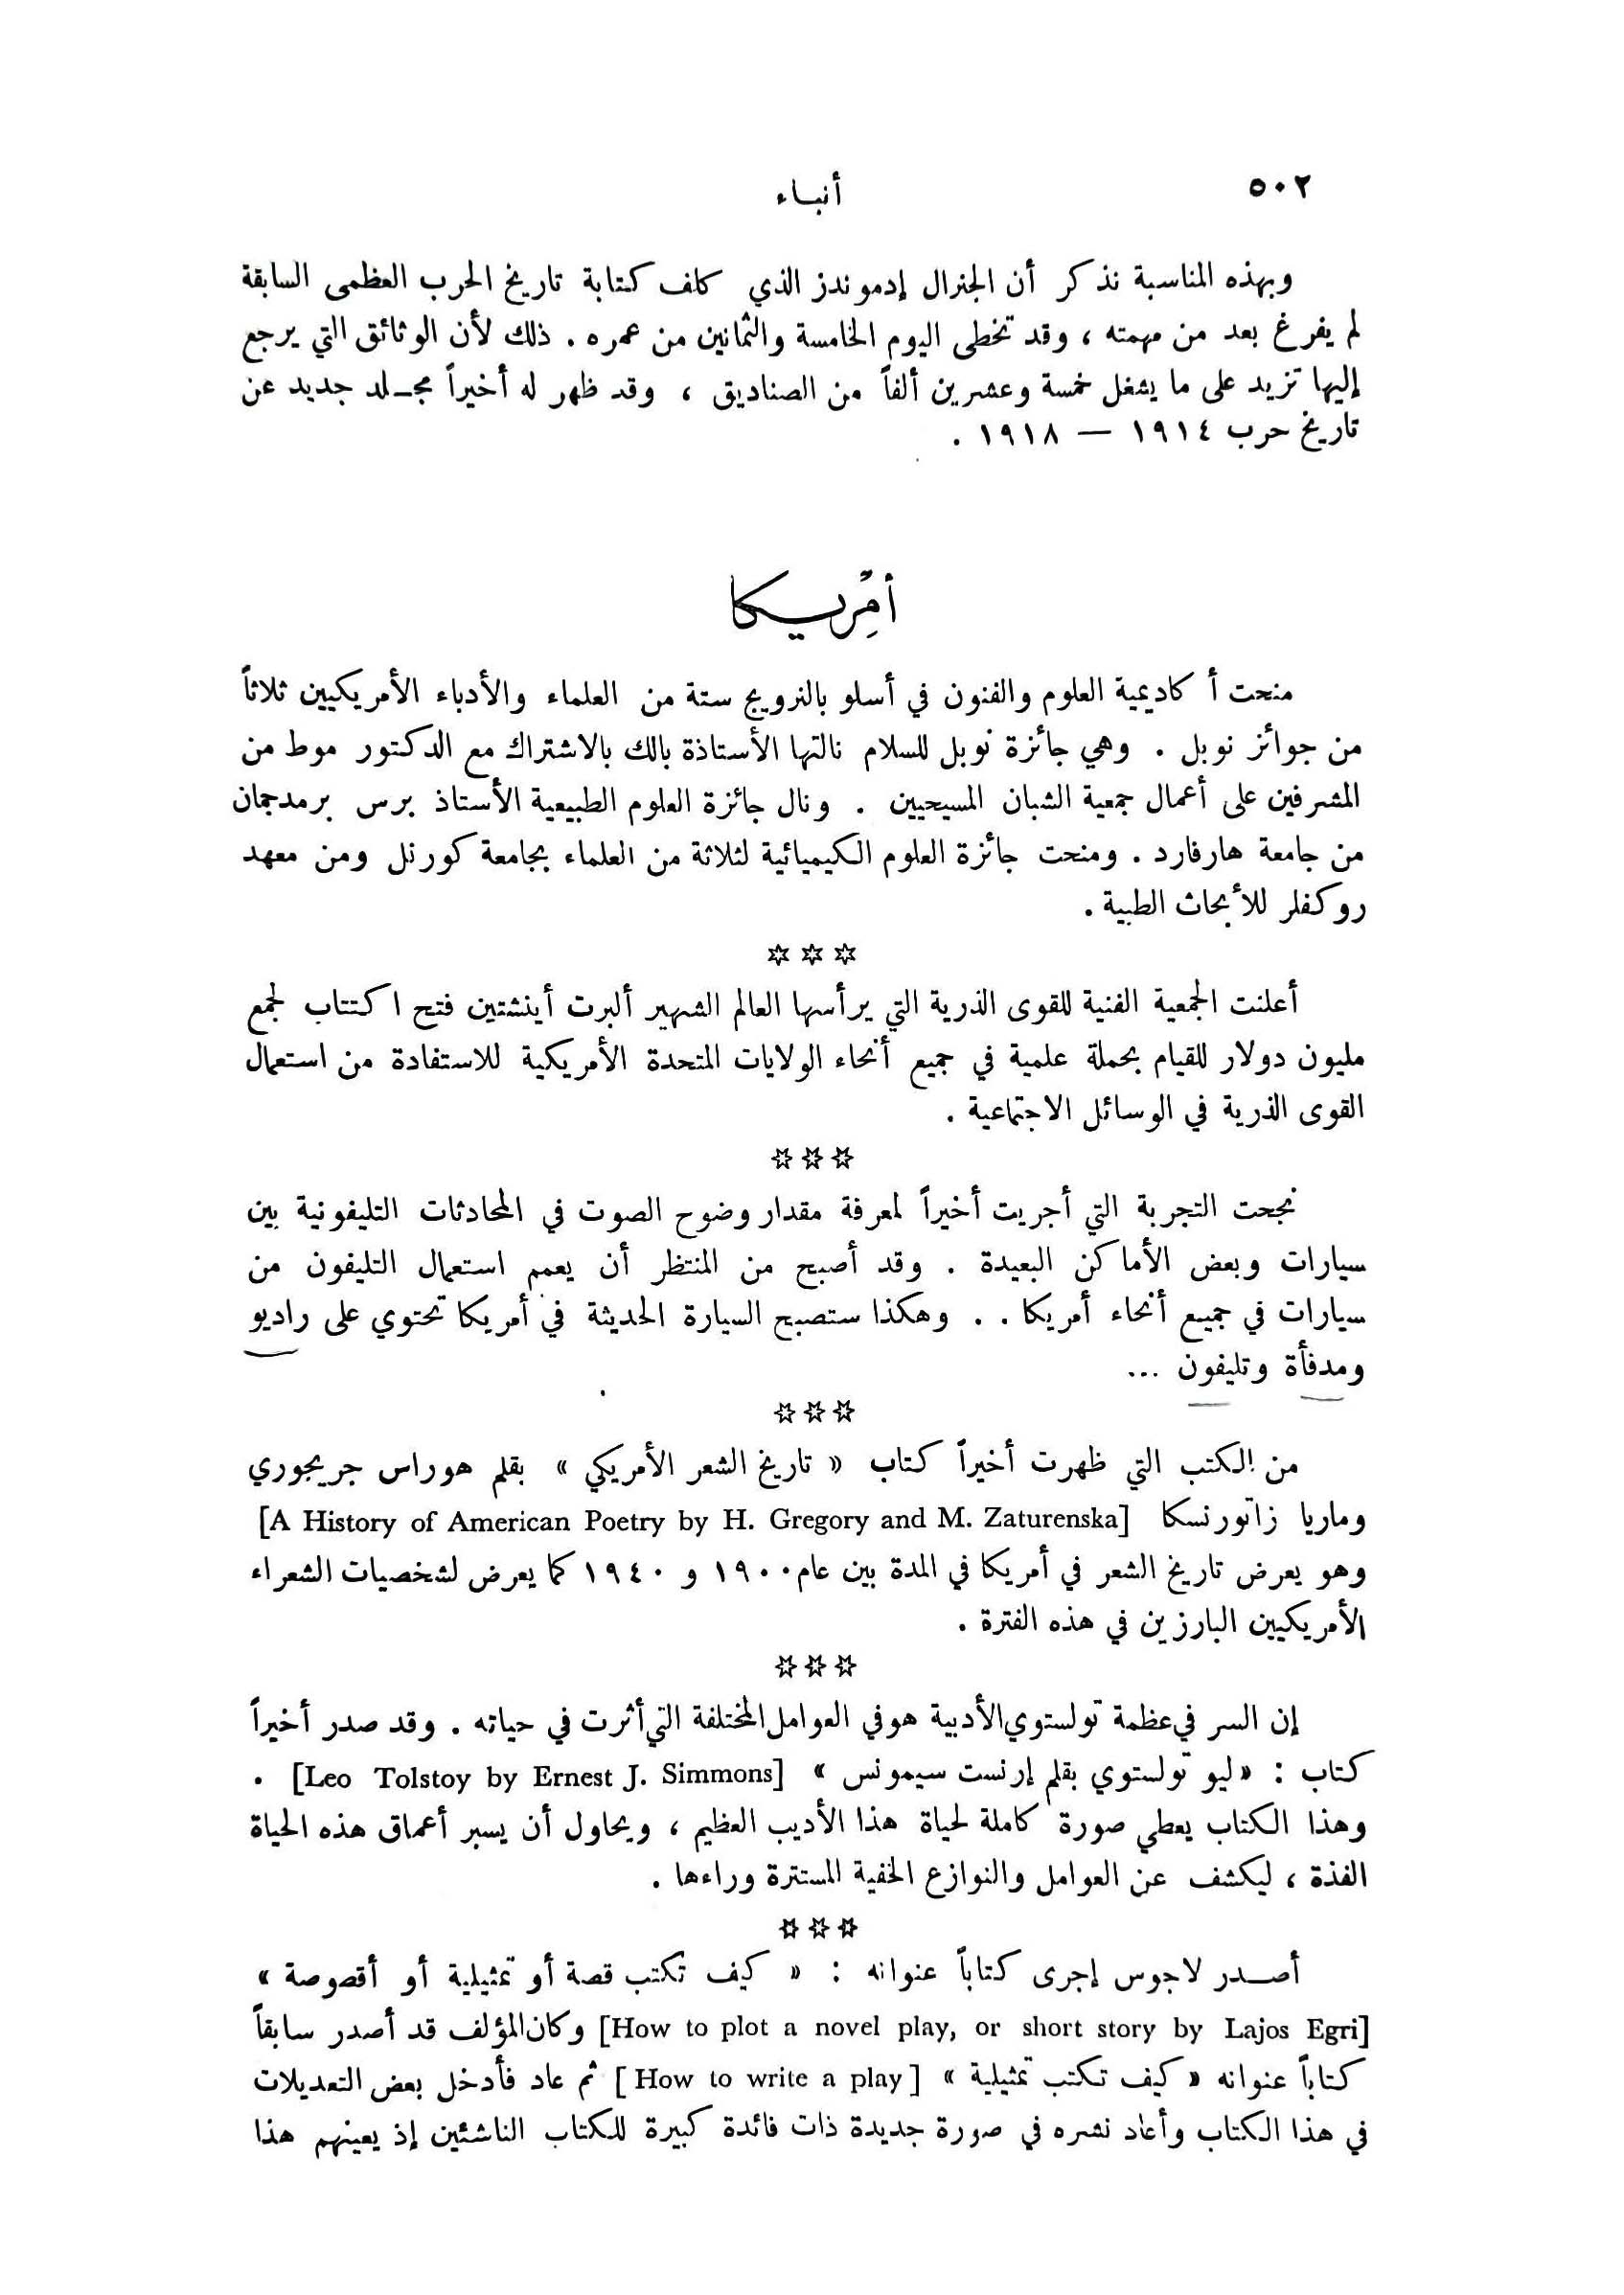 ٥٠٢
أنباء
وبهذه المناسبة نذكر أن الجنرال إدموندز الذي كلف كتابة تاريخ الحرب العظمى السابقة
لم يفرغ بعد من مهمته ، وقد تخطى اليوم الخامسة والثمانين من عمره . ذلك لأن الوثائق التي يرجع
إليها تزيد على ما يشغل خمسة وعشرين ألفاً من الصناديق ، وقد ظهر له أخيراً مجـلد جديد عن
تاريخ حرب ١٩١٤ — ١٩١٨ .
أمْرِيكا
منحت أكاديمية العلوم والفنون في أسلو بالنرويج ستة من العلماء والأدباء الأمريكيين ثلاثاً
من جوائز نوبل . وهي جائزة نوبل للسلام نالتها الأستاذة بالك بالاشتراك مع الدكتور موط من
المشرفين على أعمال جمعية الشبان المسيحيين . ونال جائزة العلوم الطبيعية الأستاذ برس برمدجمان
من جامعة هارفارد . ومنحت جائزة العلوم الكيميائية لثلاثة من العلماء بجامعة كورنل ومن معهد
روكفلر للأبحاث الطبية .
✡ ✡ ✡
أعلنت الجمعية الفنية للقوى الذرية التي يرأسها العالم الشهير ألبرت أينشتين فتح اكتتاب لجمع
مليون دولار للقيام بحملة علمية في جميع أنحاء الولايات المتحدة الأمريكية للاستفادة من استعمال
القوى الذرية في الوسائل الاجتماعية .
✡✡✡
نجحت التجربة التي أجريت أخيراً لمعرفة مقدار وضوح الصوت في المحادثات التليفونية بين
سيارات وبعض الأماكن البعيدة . وقد أصبح من المنتظر أن يعمم استعمال التليفون من
سيارات في جميع أنحاء أمريكا . . وهكذا ستصبح السيارة الحديثة في أمريكا تحتوي على راديو
ومدفأة وتليفون ...
✡✡✡
من الكتب التي ظهرت أخيراً كتاب « تاريخ الشعر الأمريكي » بقلم هوراس جريجوري
وماريا زاتورنسكا [A History of American Poetry by H. Gregory and M. Zaturenska]
وهو يعرض تاريخ الشعر في أمريكا في المدة بين عام ١٩٠٠ و ١٩٤٠ كما يعرض لشخصيات الشعراء
الأمريكيين البارزين في هذه الفترة .
✡✡✡
إن السر في عظمة تولستوي الأدبية هو في العوامل المختلفة التي أثرت في حياته . وقد صدر أخيراً
كتاب : «ليو تولستوي بقلم إرنست سيمونس » [Leo Tolstoy by Ernest J. Simmons] .
وهذا الكتاب يعطي صورة كاملة لحياة هذا الأديب العظيم ، ويحاول أن يسبر أعماق هذه الحياة
الفذة ، ليكشف عن العوامل والنوازع الخفية المستترة وراءها .
✡✡✡
أصـدر لاجوس إجرى كتاباً عنوانه : « كيف تكتب قصة أو تمثيلية أو أقصوصة »
[How to plot a novel play, or short story by Lajos Egri] وكان المؤلف قد أصدر سابقاً
كتاباً عنوانه « كيف تكتب تمثيلية » [How to write a play] ثم عاد فأدخل بعض التعديلات
في هذا الكتاب وأعاد نشره في صورة جديدة ذات فائدة كبيرة للكتاب الناشئين إذ يعينهم هذا